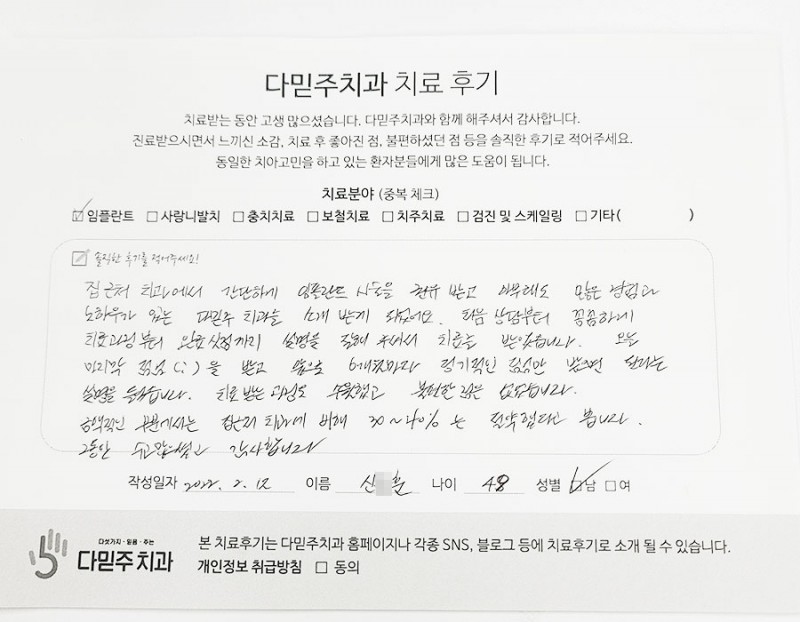 다믿주치과 치료 후기
치료받는 동안 고생 많으셨습니다. 다믿주치과와 함께 해주셔서 감사합니다.
진료받으시면서 느끼신 소감, 치료 후 좋아진 점, 불편하셨던 점 등을 솔직한 후기로 적어주세요.
동일한 치아고민을 하고 있는 환자분들에게 많은 도움이 됩니다.
치료분야 (중복 체크)
☑ 임플란트 ☐ 사랑니발치 ☐ 충치치료 ☐ 보철치료 ☐ 치주치료 ☐ 검진 및 스케일링 ☐ 기타( )
솔직한 후기를 적어주세요!
집 근처 치과에서 간단하게 임플란트 시술을 권유 받고 아무래도 많은 경험과
노하우가 있는 다믿주 치과를 소개 받게 되었어요. 처음 상담부터 꼼꼼하게
치료과정부터 완료시점까지 설명을 잘해 주셔서 치료를 받았습니다. 오늘
마지막 점검(;)을 받고 앞으로 6개월마다 정기적인 점검만 받으면 된다는
설명을 들었습니다. 치료 받는 과정도 수월했고 불편한 점은 없었습니다.
금액적인 부분에서는 집근처 치과에 비해 30~40% 는 절약했다고 봅니다.
그동안 수고많으셨고 감사합니다
작성일자 2022. 2. 12 이름 신 훈 나이 48 성별 ☑남 ☐여
다섯가지·믿음·주는
다믿주치과
본 치료후기는 다믿주치과 홈페이지나 각종 SNS, 블로그 등에 치료후기로 소개 될 수 있습니다.
개인정보 취급방침 ☐ 동의